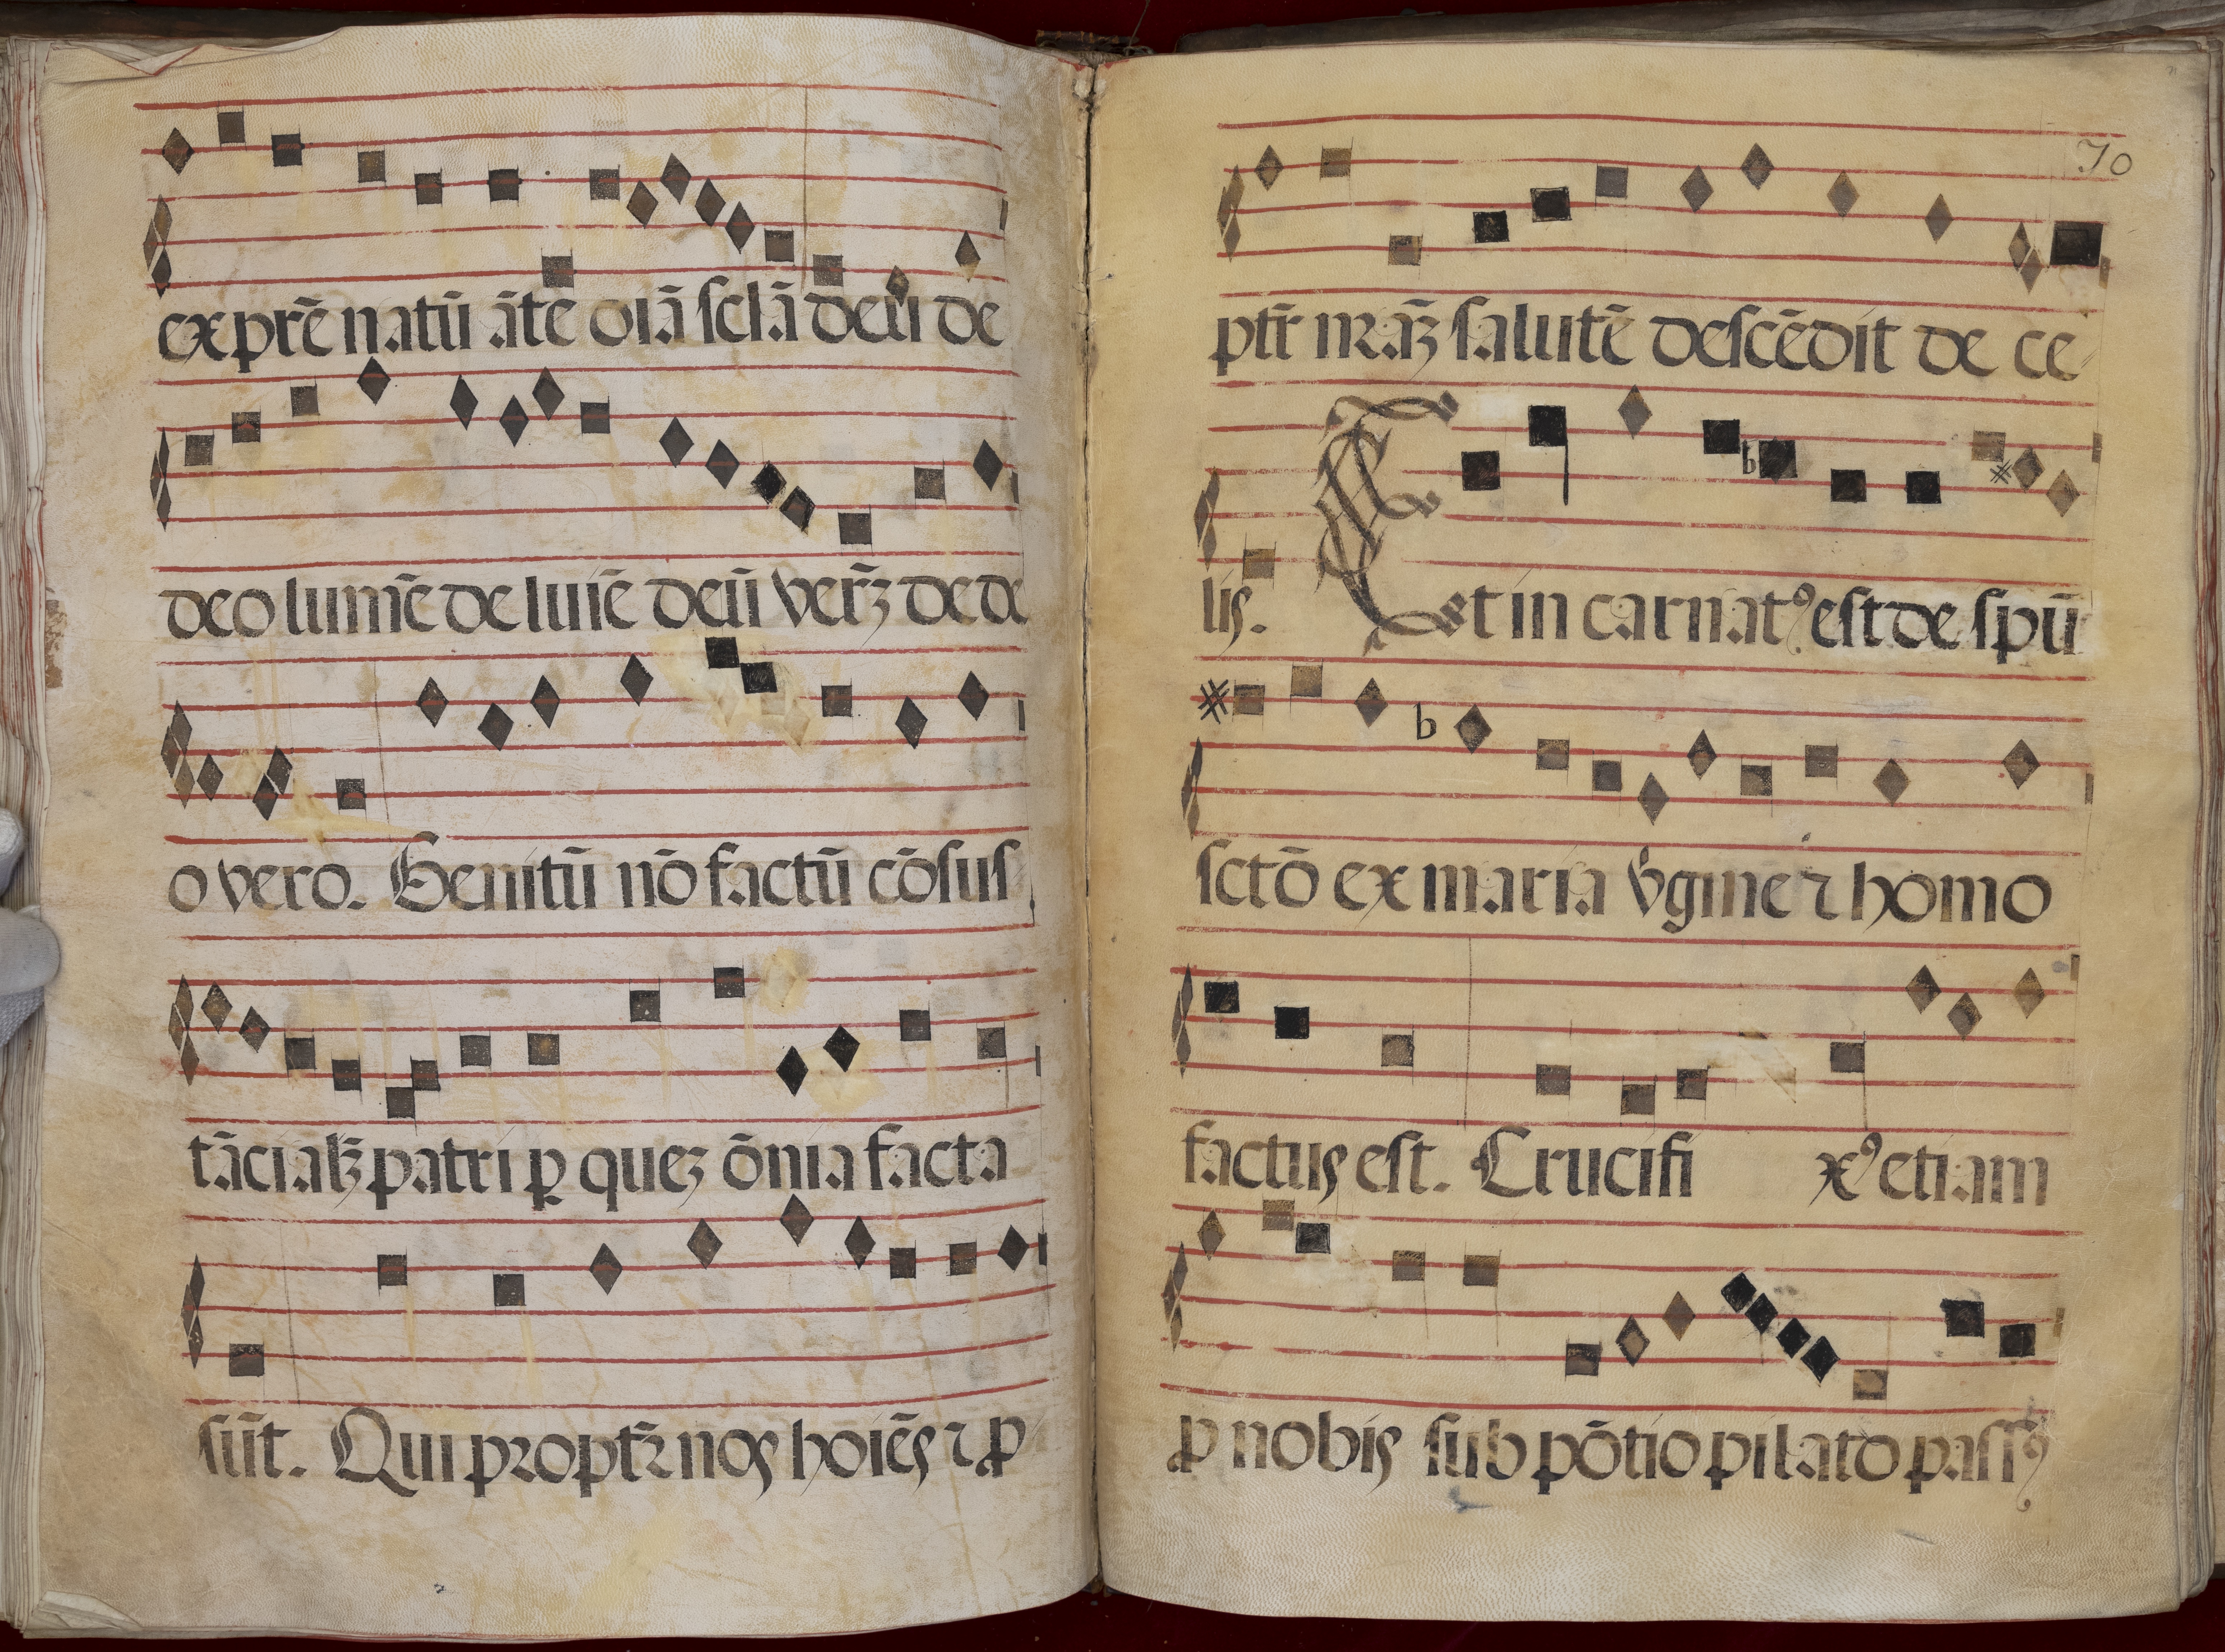 ex prē natū āte oīā sclā deū de
deo lumē de luīe deū verꝝ de de
o vero. Genitū nō factū cōsus
tācialꝫ patri ꝑ quez ōnia facta
sūt. Qui proptr̄ nos hoīēs ⁊ ꝓ
70
ptr̄ nr̄aꝫ salutē descēdit de ce
lis. Et in carnatꝰ est de spū
sctō ex maria v̇gine ⁊ homo
factus est. Crucifi xꝰ etiam
ꝓ nobis sub pōtio pilato passꝰ